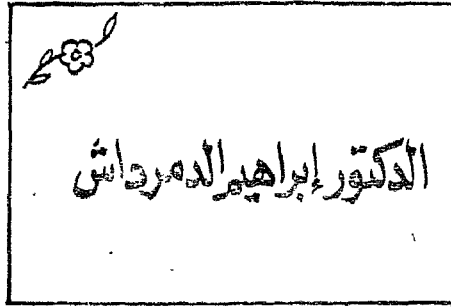 الدكتور إبراهيم الدمرداش